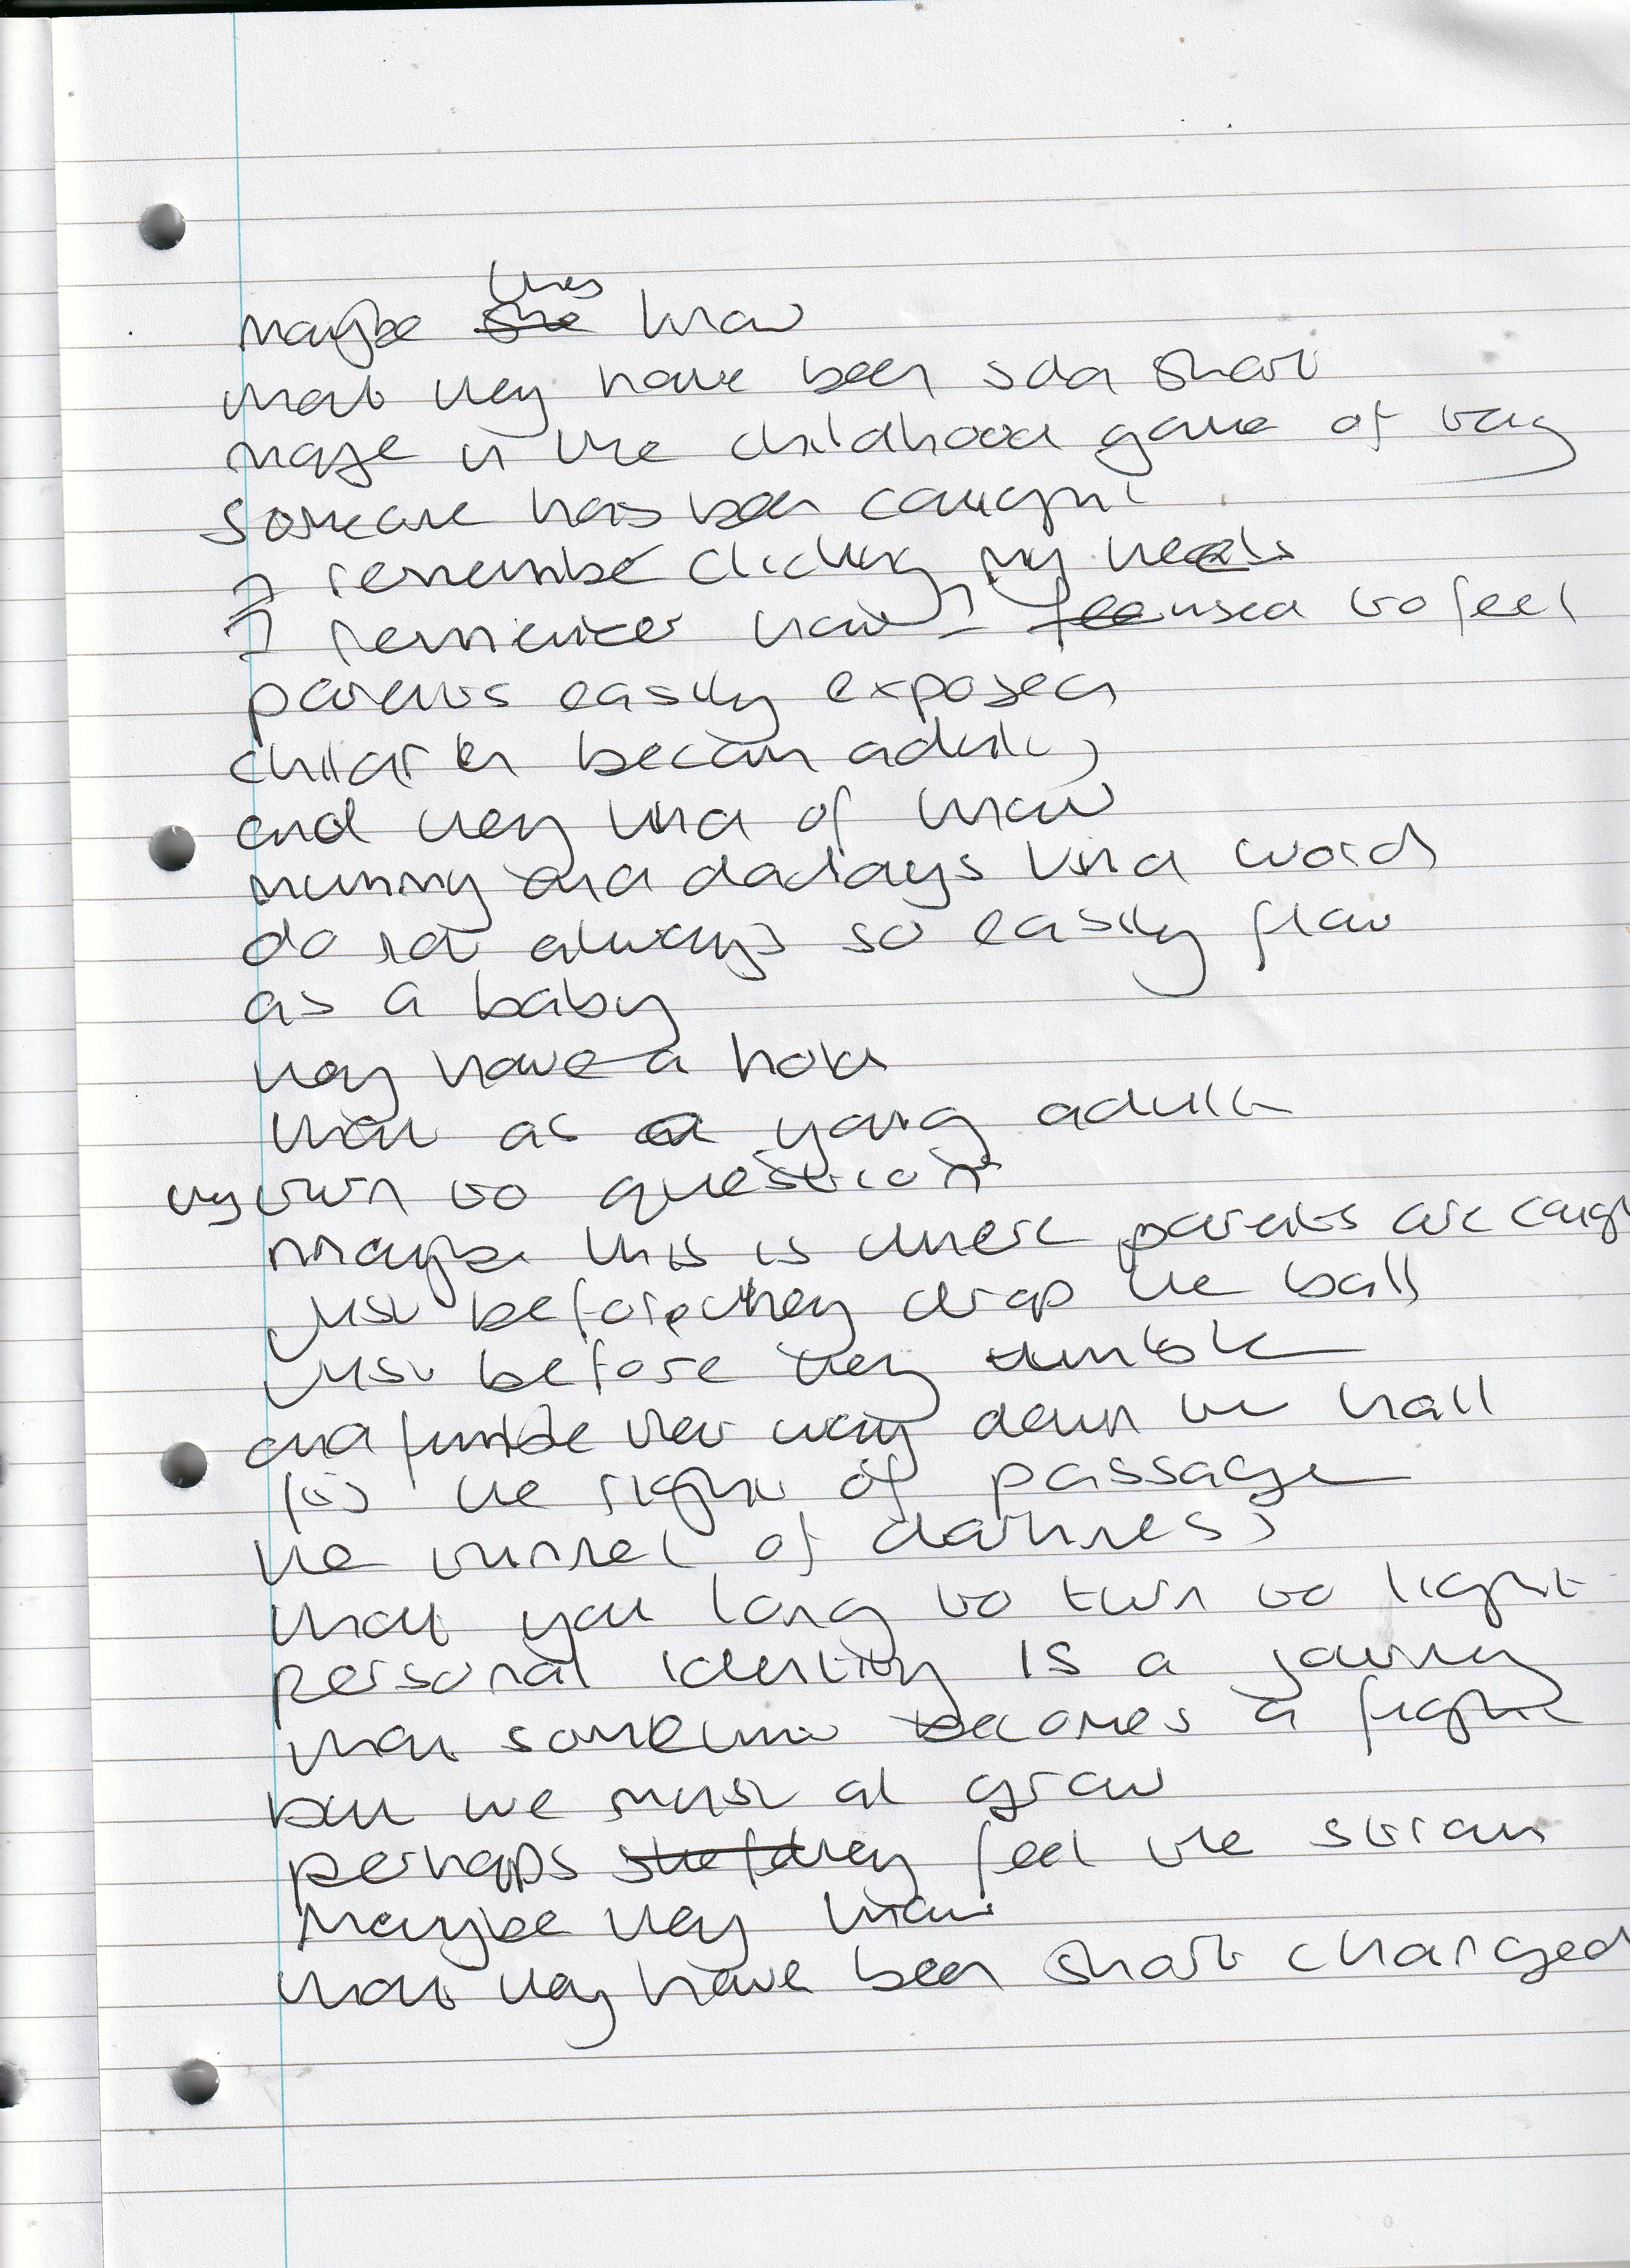 maybe they know
that they have been sold short
maybe in the childhood game of tag
someone has been caught
I remember clicking my heels
I remember how I used to feel
parents easily exposed
children become adults
and they kind of know
mummy and daddys kind word
do not always so easily flow
as a baby
they have a hold
then as a young adult
they turn to question
maybe this is where parents are caught
just before they drop the ball
just before they tumble
and fumble their way down the hall
(is) the right of passage
the tunnel of darkness
that you long to turn to light
personal identity is a journey
that sometime becomes a fight
but we must al grow
perhaps they feel the strain
Maybe they know
that they have been short changed